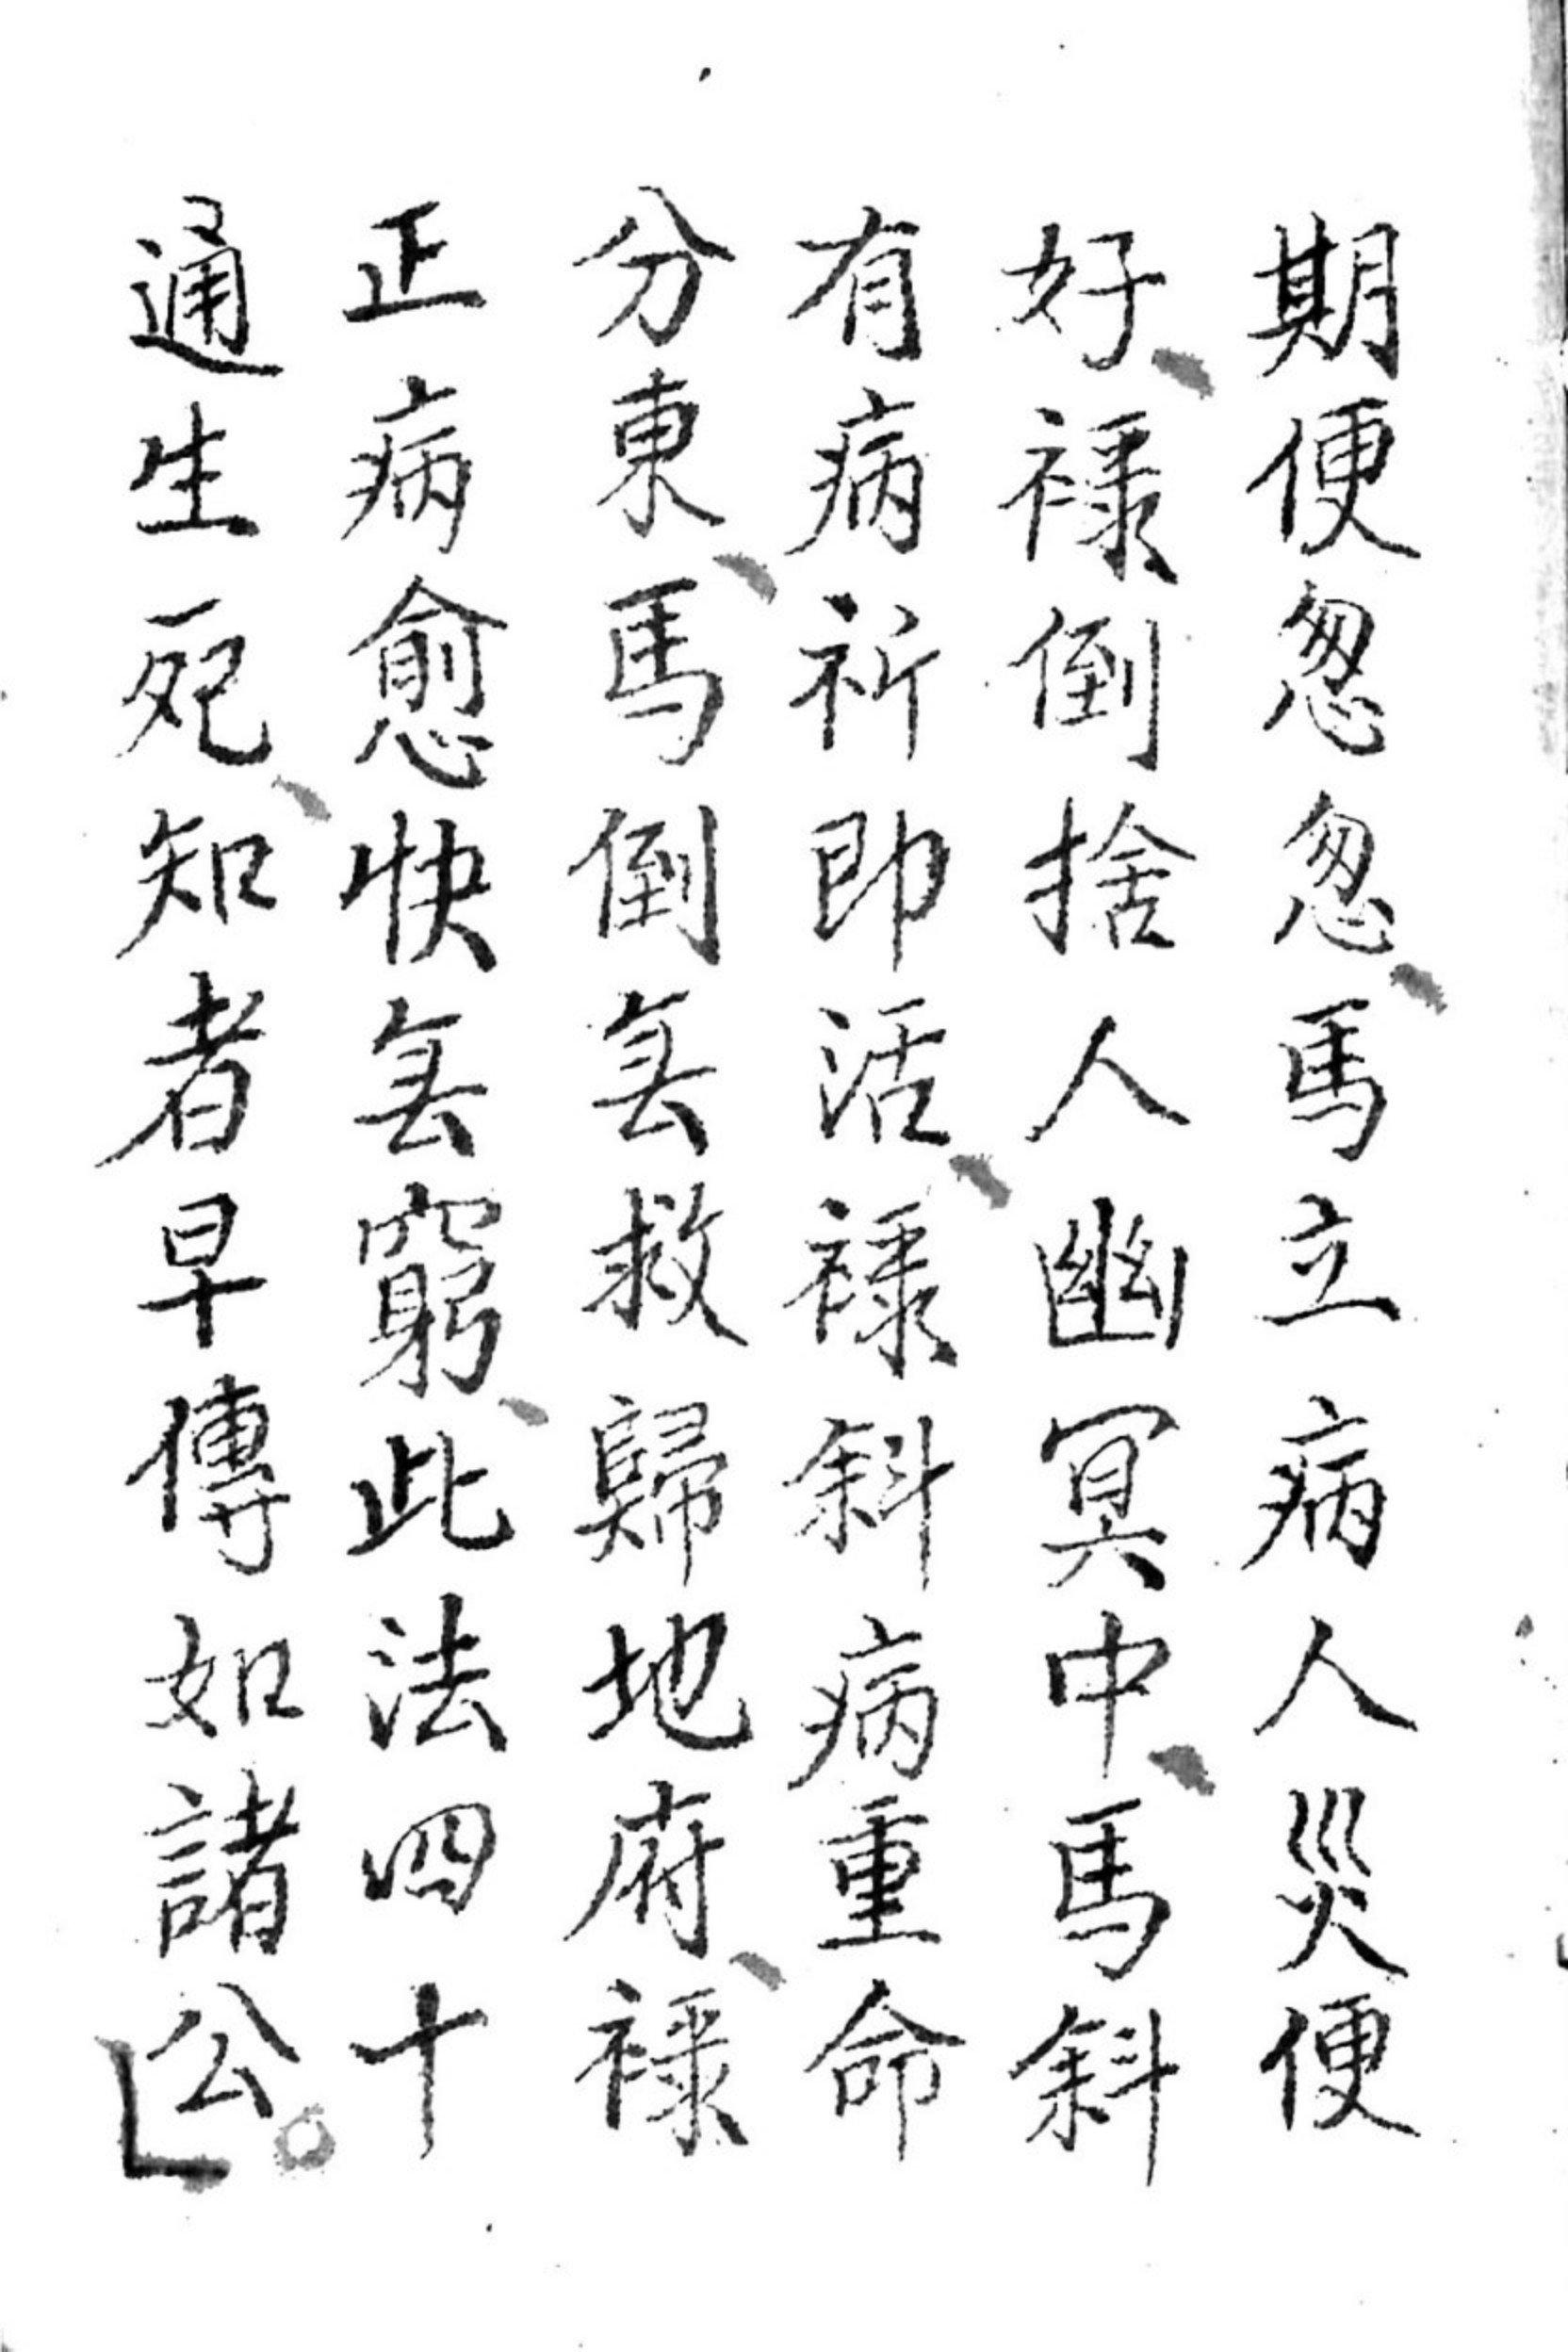 期便忽忽、馬立病人災便
好、祿倒捨人幽冥中、馬斜
有病祈即活、祿斜病重命
分東、馬倒𫞕救歸地府、祿
正病愈快𫞕窮、此法四十
通生死、知者早傳如諸公。